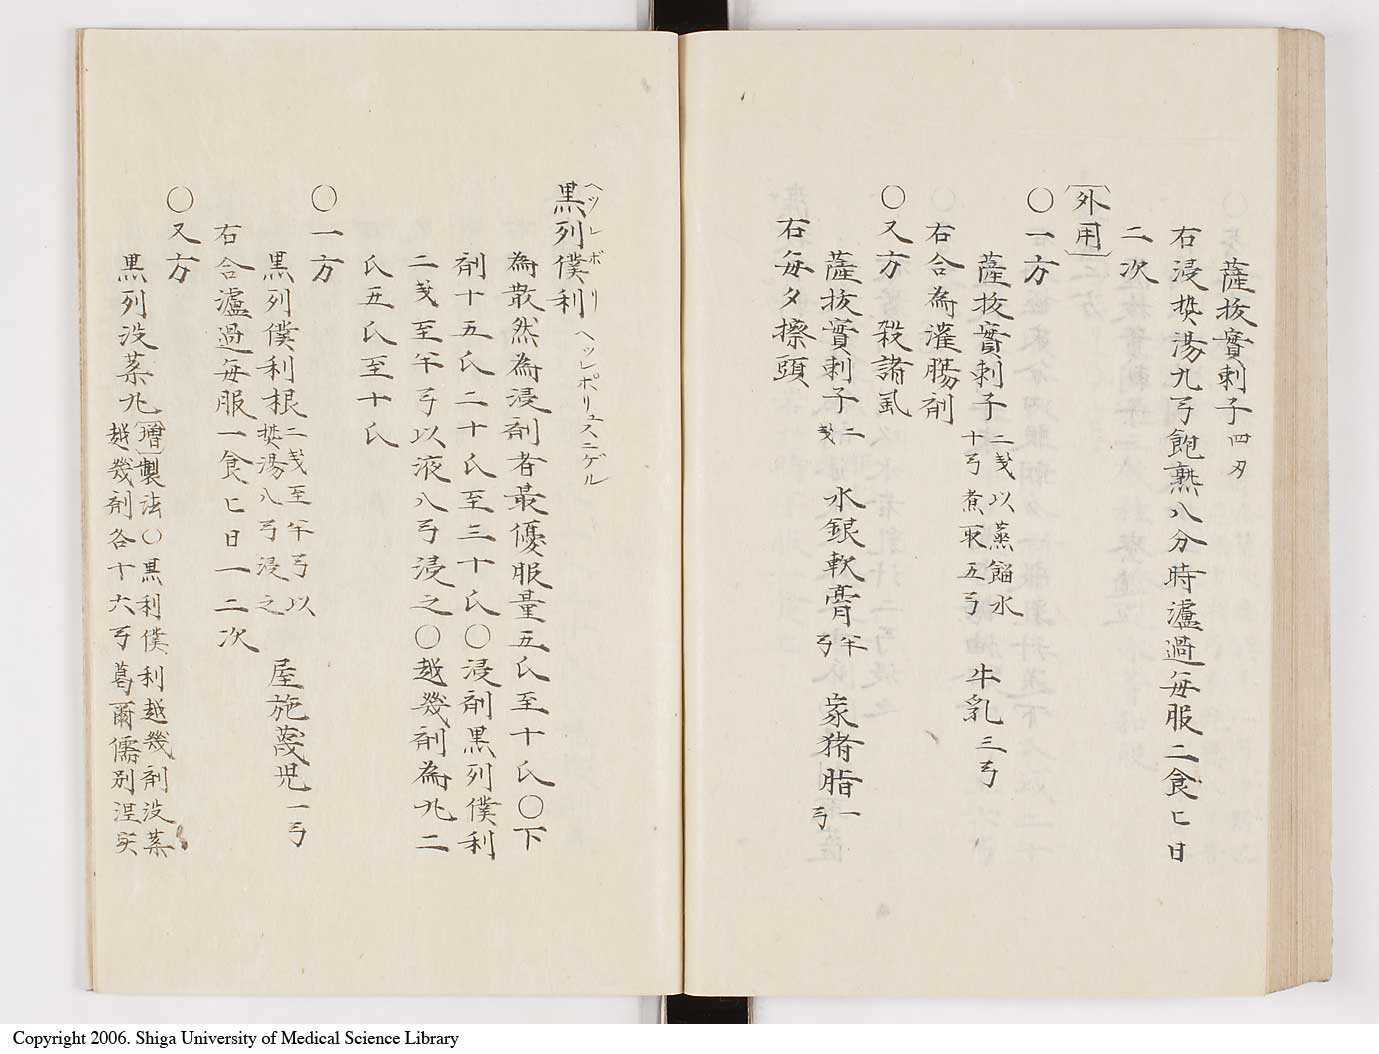 薩抜實刺子四匁
右浸焚湯九弓飽熟八分時瀘過毎服二食匕日
二次
外用
〇一方
薩抜實刺子 二戔以蒸餾水
十弓煮取五弓 牛乳三弓
右合為潅腸剤
〇又方 殺諸虱
薩抜實刺子二戔 水銀軟膏半弓 家猪脂一弓
右毎夕擦頭
黒列僕利 ヘッレボリ ヘッレポリュスニゲル
為散然為浸剤者最優服量五氏至十氏〇下
剤十五氏二十氏至三十氏〇浸剤黒列僕利
二戔至半弓以液八弓浸之〇越幾剤為丸二
氏五氏至十氏
〇一方
黒列僕利根 二戔至半弓以
焚湯八弓浸之 屋施蔑児一弓
右合瀘過毎服一食匕日一二次
〇又方
黒列没菜丸 増製法〇黒利僕利越幾剤没菜
越幾剤各十六弓葛爾儒別涅